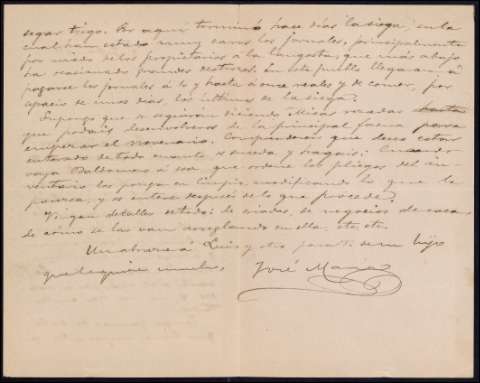 segar trigo. Por aquí terminó hace días la siega, en la
cual han estado muy caros los jornales, principalmente
por miedo de los propietarios a la langosta, que más abajo
ha ocasionado grandes destrozos. En este pueblo llegaron á
pagarse los jornales á 10 y hasta á once reales y de comer, por
espacio de unos días, los últimos de la siega.
Supongo que se seguirán diciendo Misas
que podáis desenvolveros de la principal faena para
empezar el novenario. Comprenderán que deseo estar
enterado de todo cuanto suceda y hagáis. Cuando
vaya Baldomero á esa que ordene los pliegos del in-
ventario los ponga en limpio, modificando lo que le
parezca, y se entere después de lo que procede.
Vengan detalles estado: de criados, de negocios de casa,
de cómo se las van arreglando en ella, etc. etc.
Un abrazo á Luis y otro para V. de su hijo
que le quiere mucho,
José María